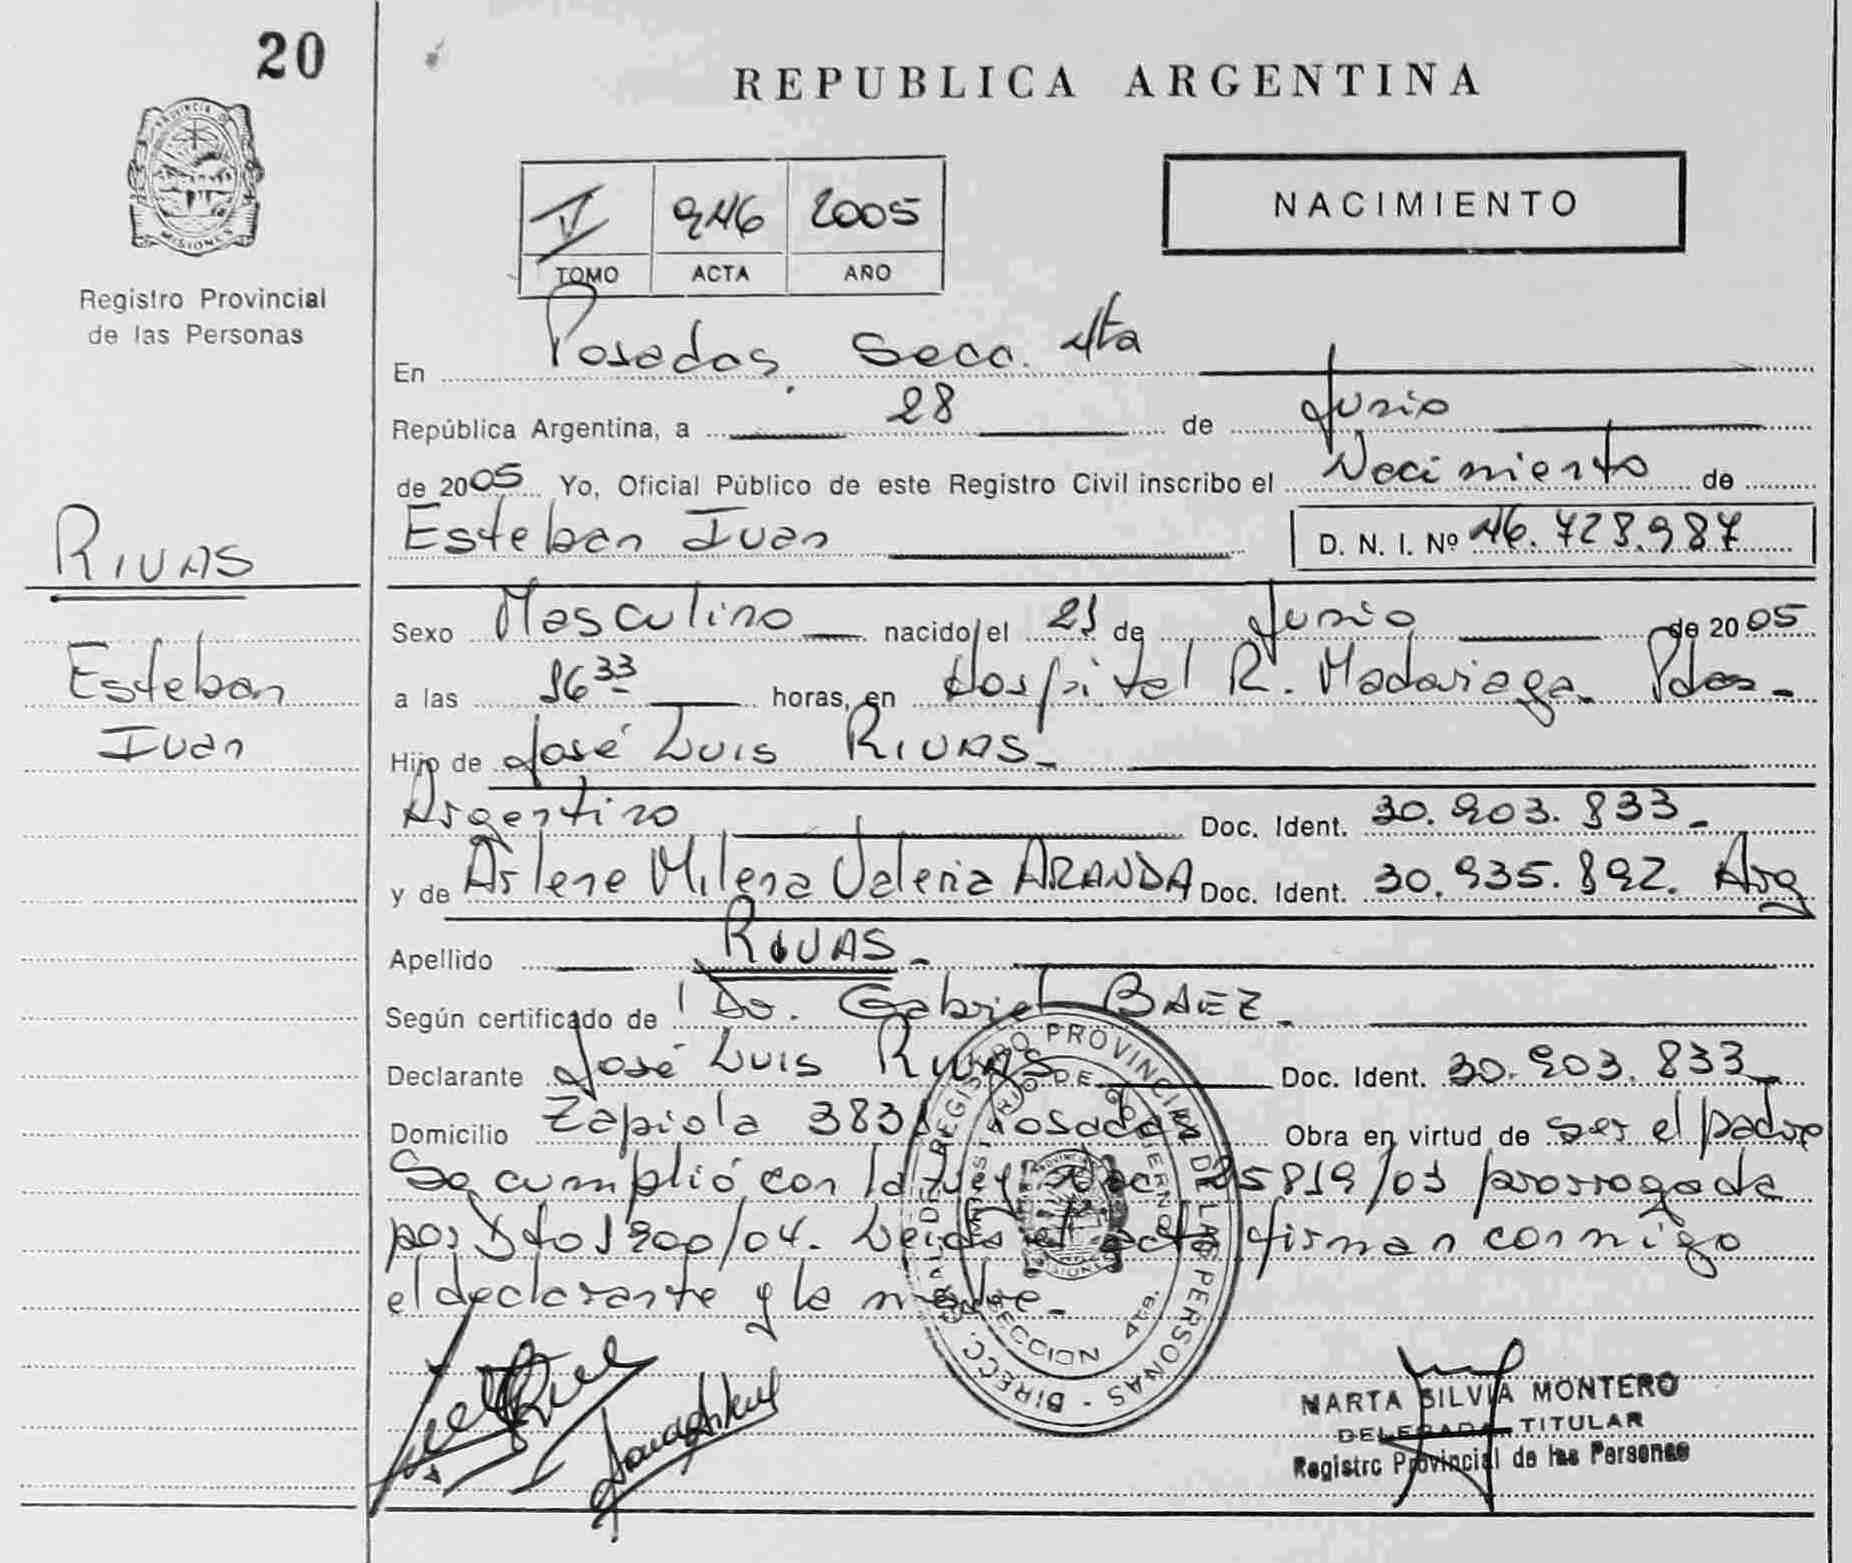 20
REPUBLICA ARGENTINA
PROVINCIA DE
MISIONES
Registro Provincial
de las Personas
V 946 2005
TOMO ACTA AÑO
NACIMIENTO
En Posadas. Secc. 4ta
República Argentina, a 28 de Junio
de 2005 Yo, Oficial Público de este Registro Civil inscribo el Nacimiento de
Esteban Ivan D. N. I. Nº 46.728.987
RIVAS
Esteban
Ivan
Sexo Masculino nacido el 21 de Junio de 2005
a las 16 33 horas, en Hospital R. Madariaga. Pdas.
Hijo de José Luis RIVAS.
Argentino Doc. Ident. 30.903.833.
y de Arlene Milena Valeria ARANDA Doc. Ident. 30.935.892. Arg
Apellido RIVAS.
Según certificado de Dr. Gabriel BAEZ.
Declarante José Luis RIVAS Doc. Ident. 30.903.833
Domicilio Zapiola 383 Posadas Obra en virtud de ser el padre
Se cumplió con la Ley Nac 25819/03 prorrogada
por Dto 1900/04. Leida el acta firman conmigo
el declarante y la madre.
DIRECC. GRAL. DEL REGISTRO PROVINCIAL DE LAS PERSONAS
MINISTERIO DE GOBIERNO
SECCION 4ta.
MARTA SILVIA MONTERO
DELEGADA TITULAR
Registro Provincial de las Personas